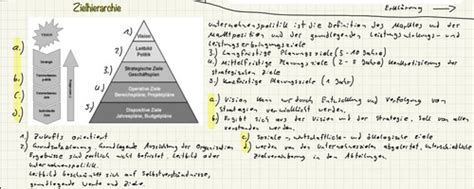 Zielhierarchie
Erklärung
Vision
Leitbild
Politik
Strategische Ziele
Geschäftsplan
Operative Ziele
Bereichspläne, Projektpläne
Dispositive Ziele
Jahrespläne, Budgetpläne
1.)
2.)
3.)
4.)
5.)
a.)
b.)
c.)
d.)
Unternehmenspolitik ist die Definition des Marktes und der
Marktposition und der grundlegenden Leistungs und
Leistungserbringungsziele
3.) Langfristige Planungsziele (5-10 Jahre)
4.) Mittelfristige Planungsziele (2-5 Jahre) Konkretisierung der
strategischen Ziele
5.) Kurzfristige Planungsziele (1 Jahr)
a.) Vision kann nur durch Entwicklung und Verfolgung von
Strategien verwirklicht werden.
b.) Ergibt sich aus der Vision und der Strategie, soll von allen
verstanden werden.
c.) Soziale, wirtschaftliche und ökologische Ziele
d.) werden von den Unternehmenszielen abgeleitet,
Zielvereinbarung in den Abteilungen
1.) Zukunfts orientiert
2.) Grundsatzplanung, Grundlegende Ausrichtung der Organisation
Ergebnisse sind zeitlich nicht befristet, Leitbild oder
Unternehmenspolitik.
Leitbild beschränkt sich auf Selbstverständnisse,
grundlegende Werte und Ziele.